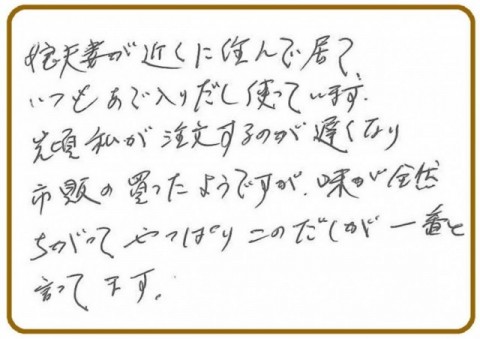 娘夫妻が近くに住んで居て
いつもあご入りだし使っています.
先頃私が注文するのが遅くなり
市販の買ったようですが、味が全然
ちがって やっぱりこのだしが一番と
言ってます。